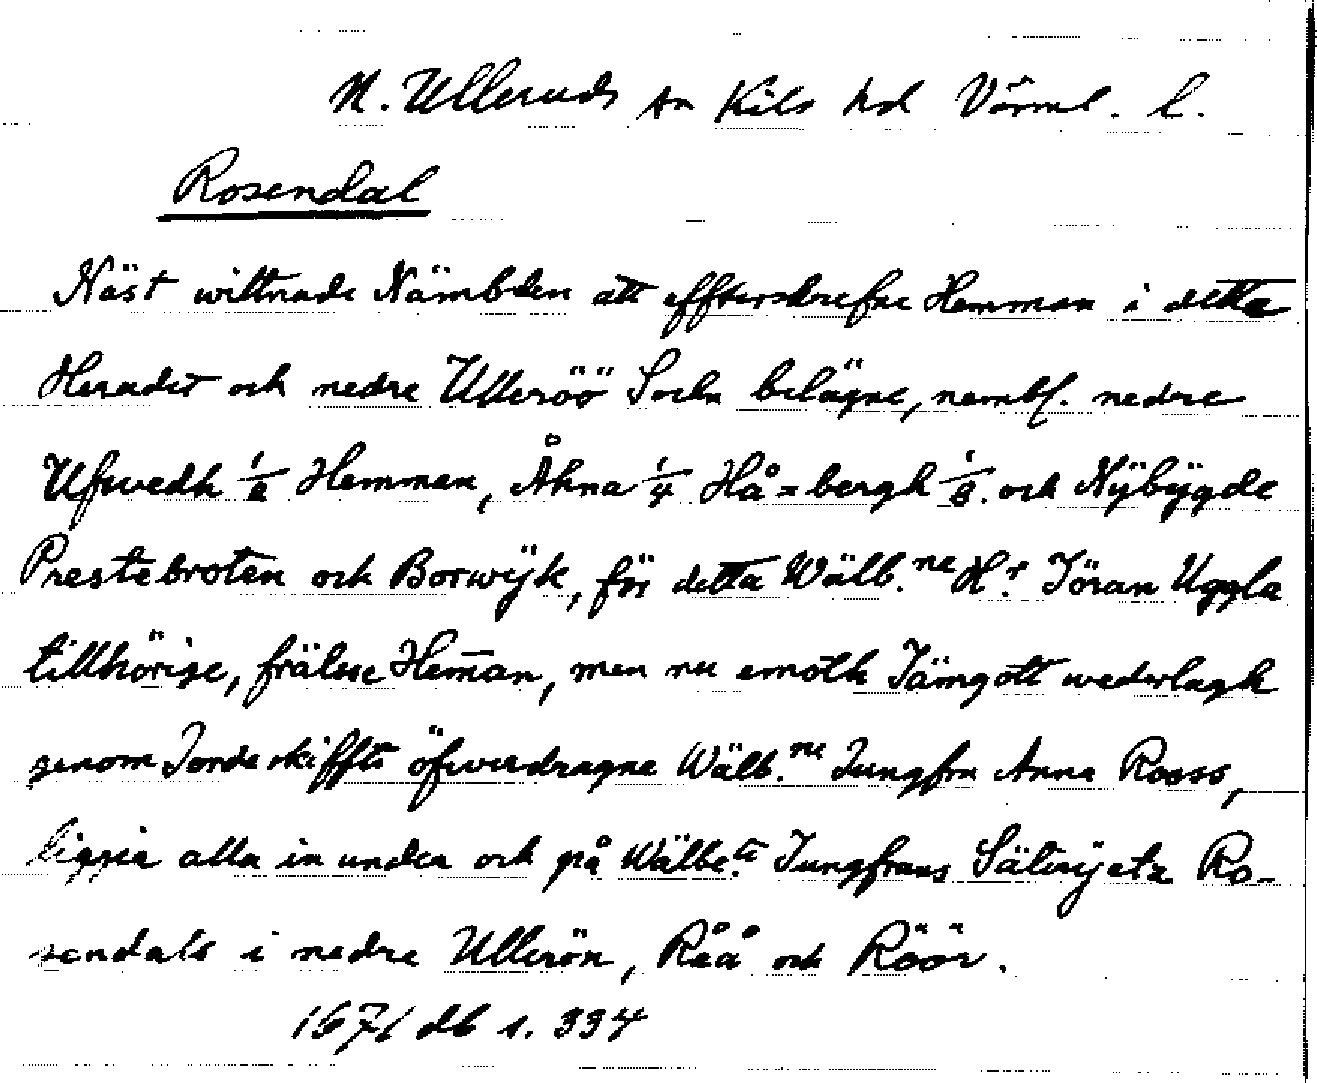 N. Ulleruds sn Kils hd Värml. l.
Rosendal
Näst wittnade Nämbden att effterskrefne Hemman i detta
Heradet och nedre Ulleröö Sochn belägne, nembl. nedre
Ufwedh 1/2 Hemman, Åhna 1/4 Hå=bergh 1/8. och Nÿbÿgde
Prestebroten och Borwÿk, för detta Wälb.ne H.r Jöran Uggla
tillhörige, frälsse Hem̄an, men nu emoth Jämgott wederlagh
genom Jordeskiffte öfwerdragne Wälb.ne Jungfru Anna Rooss,
liggia alla in under och på Wälbe.te Jungfruns Säterÿetz Ro-
sendals i nedre Ullerön, Råå och Röör.
1671 db s. 334